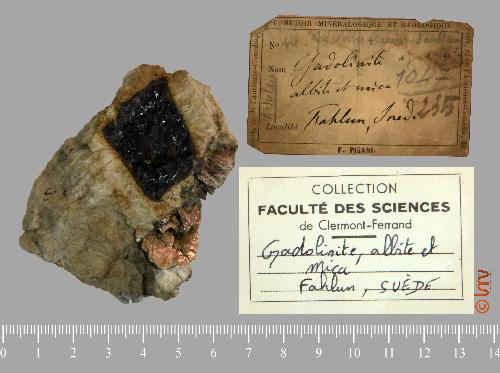 COMPTOIR MINÉRALOGIQUE ET GÉOLOGIQUE
No
Nom Gadolinite
albite et mica
104
235
Localité Fahlun, Suède
F. PISANI.
COLLECTION
FACULTÉ DES SCIENCES
de Clermont-Ferrand
Gadolinite, albite et
mica
Fahlun, SUÈDE
0 1 2 3 4 5 6 7 8 9 10 11 12 13 14